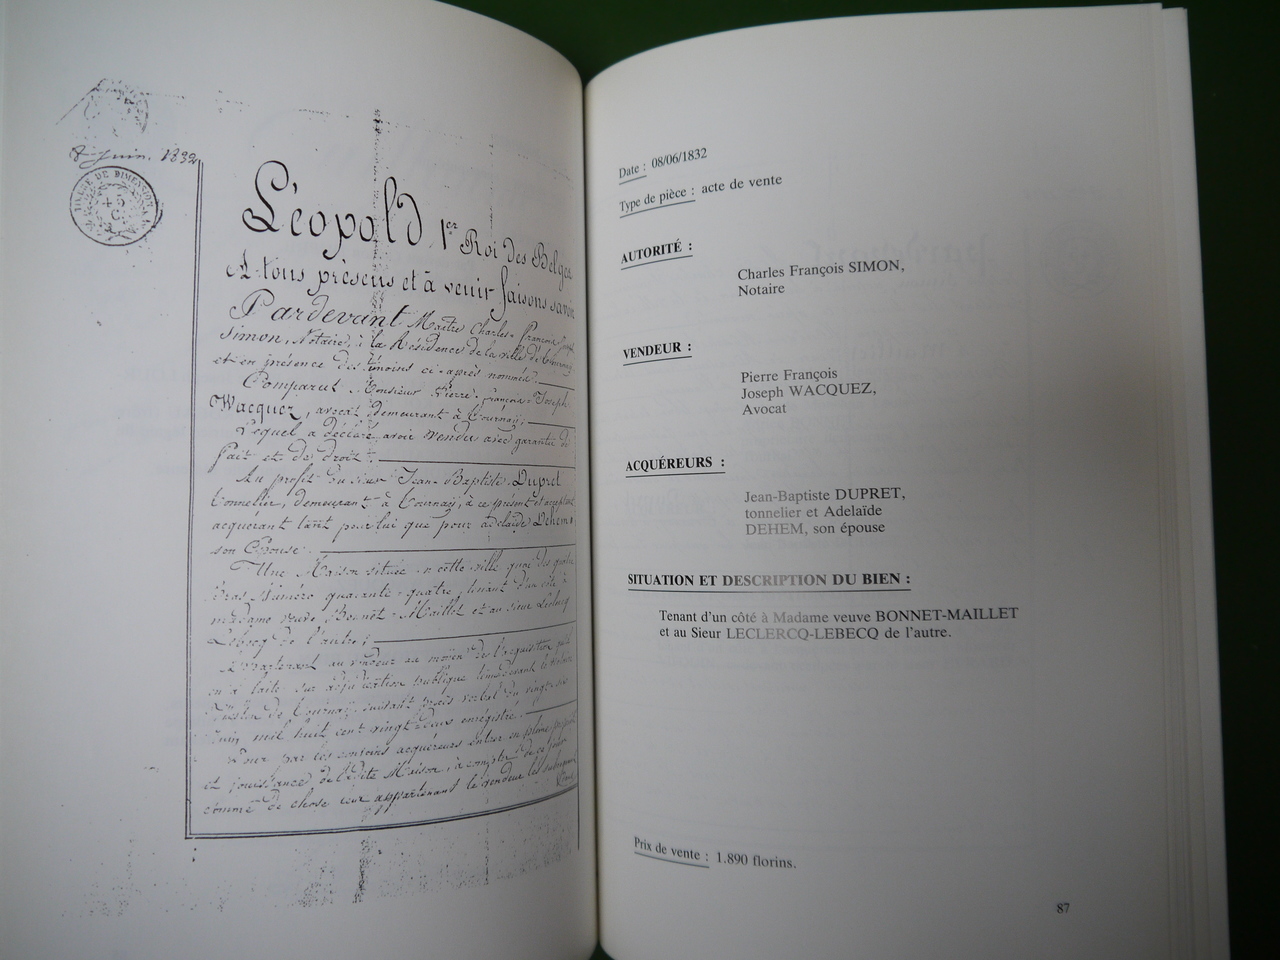 8 Juin. 1832
TIMBRE DE DIMENSION
45
C
Léopold 1er Roi des Belges
A tous présens et à venir faisons savoir
Pardevant Maître Charles-François Joseph
Simon, Notaire, à la Résidence de la ville de Tournay
et en présence des témoins ci-après nommés.
Comparut Monsieur Pierre, françois-Joseph
Wacquez, avocat demeurant à Tournaij;
Lequel a déclaré avoir vendu avec garantie de
fait et de droit.
Au profit du sieur Jean-Baptiste Dupret
tonnelier, demeurant à Tournaij, à ce présent et acceptant
acquérant tant pour lui que pour adelaïde Dehem
son Epouse.
Une Maison située en cette ville quai des quatre
Bras Numéro quarante-quatre, tenant d'un côté à
madame veuve Bonnet-Maillet et au sieur Leclercq
Lebecq de l'autre;
Appartenant au vendeur au moyen de l'acquisition qu'il
en a faite sur adjudication publique tenue devant le Notaire
de Tournay, suivant procès verbal du vingt-six
Juin mil huit cent vingt-deux enrégistré.
Pour par les acquéreurs entrer en pleine propriété
et jouissance de ladite Maison, à compter de ce jour
comme de chose leur appartenant le vendeur les subrogeant
Date : 08/06/1832
Type de pièce : acte de vente
AUTORITÉ :
Charles François SIMON,
Notaire
VENDEUR :
Pierre François
Joseph WACQUEZ,
Avocat
ACQUÉREURS :
Jean-Baptiste DUPRET,
tonnelier et Adelaïde
DEHEM, son épouse
SITUATION ET DESCRIPTION DU BIEN :
Tenant d'un côté à Madame veuve BONNET-MAILLET
et au Sieur LECLERCQ-LEBECQ de l'autre.
Prix de vente : 1.890 florins.
87